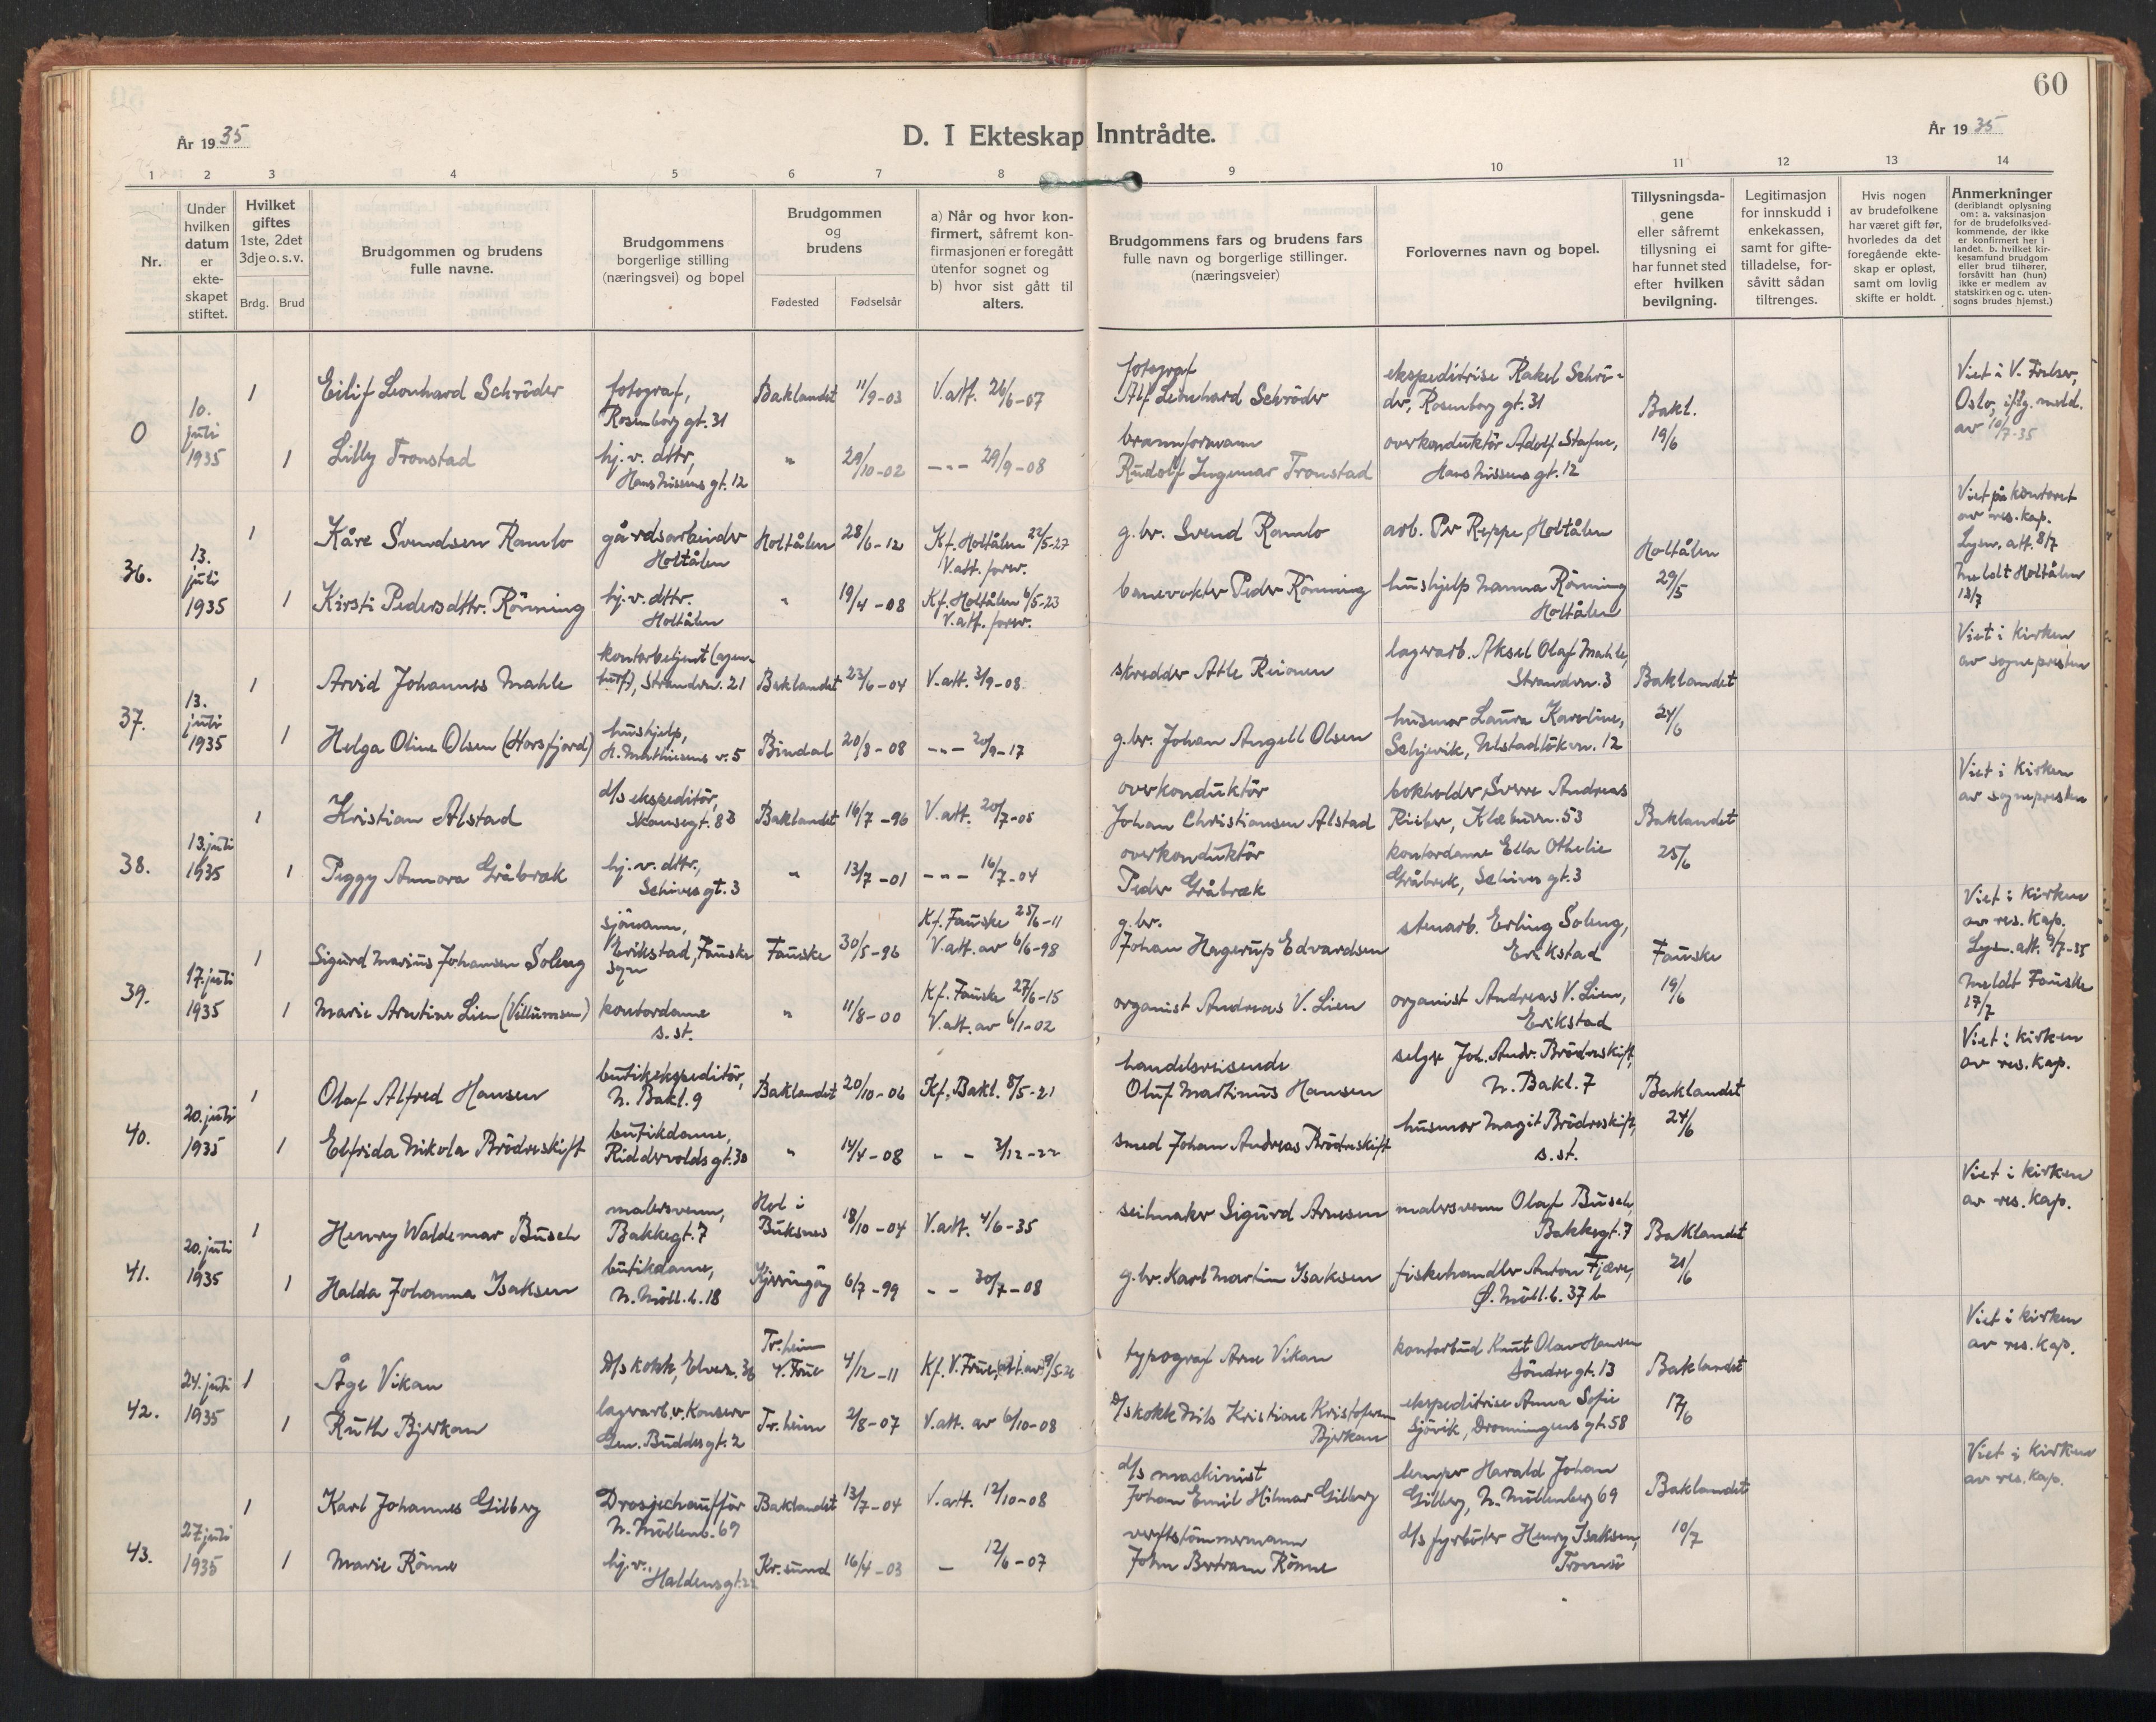 60
År 1935
D. I Ekteskap Inntrådte.
År 1935
1 2 3 4 5 6 7 8 9 10 11 12 13 14
Nr.
Under hvilken datum er ekte-
skapet stiftet.
Hvilket giftes
1ste, 2det
3dje o. s. v.
Brdg. Brud
Brudgommen og brudens
fulle navne.
Brudgommens
borgerlige stilling
(næringsvei) og bopel
Brudgommen
og
brudens
Fødested Fødselsår
a) Når og hvor kon-
firmert, såfremt kon-
firmasjonen er foregått
utenfor sognet og
b) hvor sist gått til
alters.
Brudgommens fars og brudens fars
fulle navn og borgerlige stillinger.
(næringsveier)
Forlovernes navn og bopel.
Tillysningsda-
gene
eller såfremt
tillysning ei
har funnet sted
efter hvilken
bevilgning.
Legitimasjon
for innskudd i
enkekassen,
samt for gifte-
tilladelse, for-
såvitt sådan
tiltrenges.
Hvis nogen
av brudefolkene
har været gift før,
hvorledes da det
foregående ekte-
skap er opløst,
samt om lovlig
skifte er holdt.
Anmerkninger
(deriblandt oplysning
om: a. vaksinasjon
for de brudefolks ved-
kommende, der ikke
er konfirmert her i
landet. b. hvilket kir-
kesamfund brudgom
eller brud tilhører,
forsåvitt han (hun)
ikke er medlem av
statskirken og c. uten-
sogns brudes hjemst.)
0
10.
juli
1935
1 Eilif Leonhard Schrøder
fotograf,
Rosenborg gt. 31
Baklandet 11/9-03 V.att. 26/6-07
fotograf
Alf Leonhard Schröder
ekspeditrise Rakel Schrö-
der, Rosenborg gt. 31
Bakl.
19/6
Viet i V. Frelser,
Oslo, iflg. medd.
av 10/7-35
1 Lilly Tronstad
hj. v. dttr,
Hans Nissens gt. 12
" 29/10-02 --- 29/9-08
brannformann
Rudolf Ingemar Tronstad
overkonduktör Adolf Stafne,
Hans Nissens gt. 12
36.
13.
juli
1935
1 Kåre Svendsen Ramlo
gårdsarbeider
Holtålen
Holtålen 28/6-12
Kf. Holtålen 22/5-27
V.att. forev.
g.br. Svend Ramlo
arb. Per Reppe, Holtålen
Holtålen
29/5
Viet på kontoret
av res. kap.
Lysn. att. 8/7
Meldt Holtålen
13/7
1 Kirsti Pedersdttr. Rönning
hj. v. dttr.
Holtålen
" 19/4-08
Kf. Holtålen 6/5-23
V.att. forev.
banevokter Peder Rönning
hushjelp Nanna Rönning
Holtålen
37.
13.
juli
1935
1 Arvid Johannes Mahle
kontorbetjent
Strandvn. 21
Baklandet 23/6-04 V.att. 3/9-08
skredder Atle
lagerarb. Aksel Olaf Mahle,
Strandvn. 3
Baklandet
24/6
Viet i kirken
av sognepresten
1 Helga Oline Olsen (Horsfjord)
hushjelp,
H. Mathiesens v. 5
Bindal 20/8-08 --- 20/9-17
g.br. Johan Angell Olsen
husmor Laura Karoline,
12
38.
13. juli
1935
1 Kristian Alstad
d/s ekspeditör,
Skansegt. 8
Baklandet 16/7-96 V.att. 20/7-05
overkonduktör
Johan Christiansen Alstad
bokholder Sverre Andreas
Rieber, Klæbuvn. 53
Baklandet
25/6
Viet i kirken
av sognepresten
1 Peggy Annora Gråbræk
hj. v. dttr.,
Schives gt. 3
" 13/7-01 --- 16/7-04
overkonduktör
Peder Gråbræk
kontordame Ella Othelie
Gråbræk, Schives gt. 3
39.
17. juli
1935
1 Sigurd Marius Johansen Soleng
sjömann,
Erikstad, Fauske
sgn
Fauske 30/5-96
Kf. Fauske 25/6-11
V.att. av 6/6-98
g.br.
Johan Hagerup Edvardsen
stenarb. Erling Soleng,
Erikstad
Fauske
19/6
Viet i kirken
av res. kap.
Lysn. att. 9/7-35
Meldt Fauske
17/7
1 Marie Arntine Lien (Villumsen)
kontordame
s. st.
" 11/8-00
Kf. Fauske 27/6-15
V.att. av 6/1-02
organist Andreas V. Lien
organist Andreas V. Lien,
Erikstad
40.
20. juli
1935
1 Olaf Alfred Hansen
butikekspeditör,
N. Bakl. 9
Baklandet 20/10-06 Kf. Bakl. 8/5-21
handelsreisende
Oluf Martinus Hansen
selger Joh. Andr. Brödreskift,
N. Bakl. 7
Baklandet
24/6
Viet i kirken
av res. kap.
1 Elfrida Nikola Brödreskift
butikdame,
Riddervolds gt. 30
" 14/4-08 - - 3/12-22
smed Johan Andreas Brödreskift
husmor Magit Brödreskift,
s. st.
41.
20. juli
1935
1 Henry Waldemar Busch
malersvenn,
Bakkegt. 7
Hol i
Buksnes
18/10-04 V.att. 4/6-35
seilmaker Sigurd Arnesen
malersvenn Olaf Busch,
Bakkegt. 7
Baklandet
21/6
Viet i kirken
av res. kap.
1 Halda Johanna Isaksen
butikdame,
N. Möll.b. 18
Kjerringöy 6/7-99 - - 30/7-08
g.br. Karl Martin Isaksen
fiskehandler Anton Fjære,
Ø. Möll.b. 37 b
42.
24. juli
1935
1 Åge Vikan
d/s kokk, Elvegt. 36
Tr.heim
V. Frue
4/12-11 Kf. V. Frue, att. av 9/5-26
typograf Arne Vikan
kontorbud Knut Olav Hansen
Söndre gt. 13
Baklandet
17/6
Viet i kirken
av res. kap.
1 Ruth Bjerkan
lagerarb. v. Konserv
Gen. Buddes gt. 2
Tr.heim 2/8-07 V.att. av 6/10-08
d/s kokk Nils Kristian Kristofersen
Bjerkan
ekspeditrise Anna Sofie
Sjövik, Dronningens gt. 58
43.
27. juli
1935
1 Karl Johannes Gilberg
Drosjechaufför
N. Möllenb. 69
Baklandet 13/7-04 V.att. 12/10-08
d/s maskinist
Johan Emil Hilmar Gilberg
lemper Harald Johan
Gilberg, N. Möllenberg 69
Baklandet
10/7
Viet i kirken
av res. kap.
1 Marie Rönne
hj. v.,
Haldensgt. 22
Kr.sund 16/4-03 - 12/6-07
verftstömmermann
John Bertram Rönne
d/s fyrböter Henry Isaksen,
Tromsö